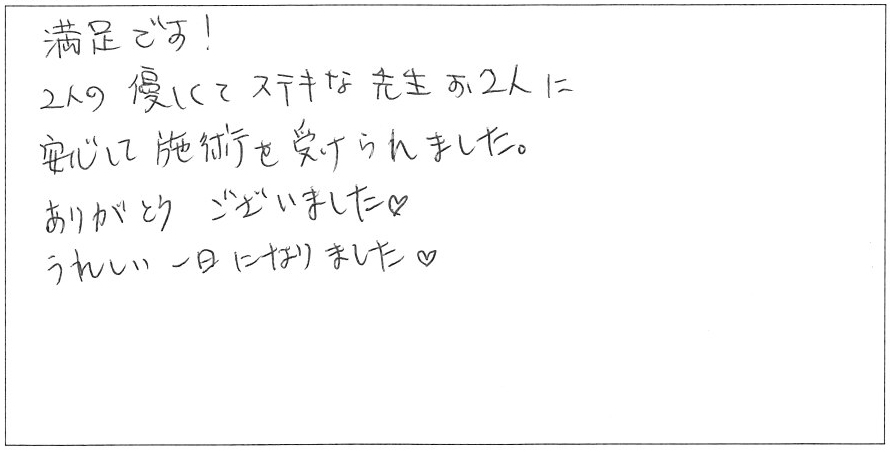 満足です!
2人の優しくてステキな先生お2人に
安心して施術を受けられました。
ありがとう ございました♡
うれしい一日になりました♡